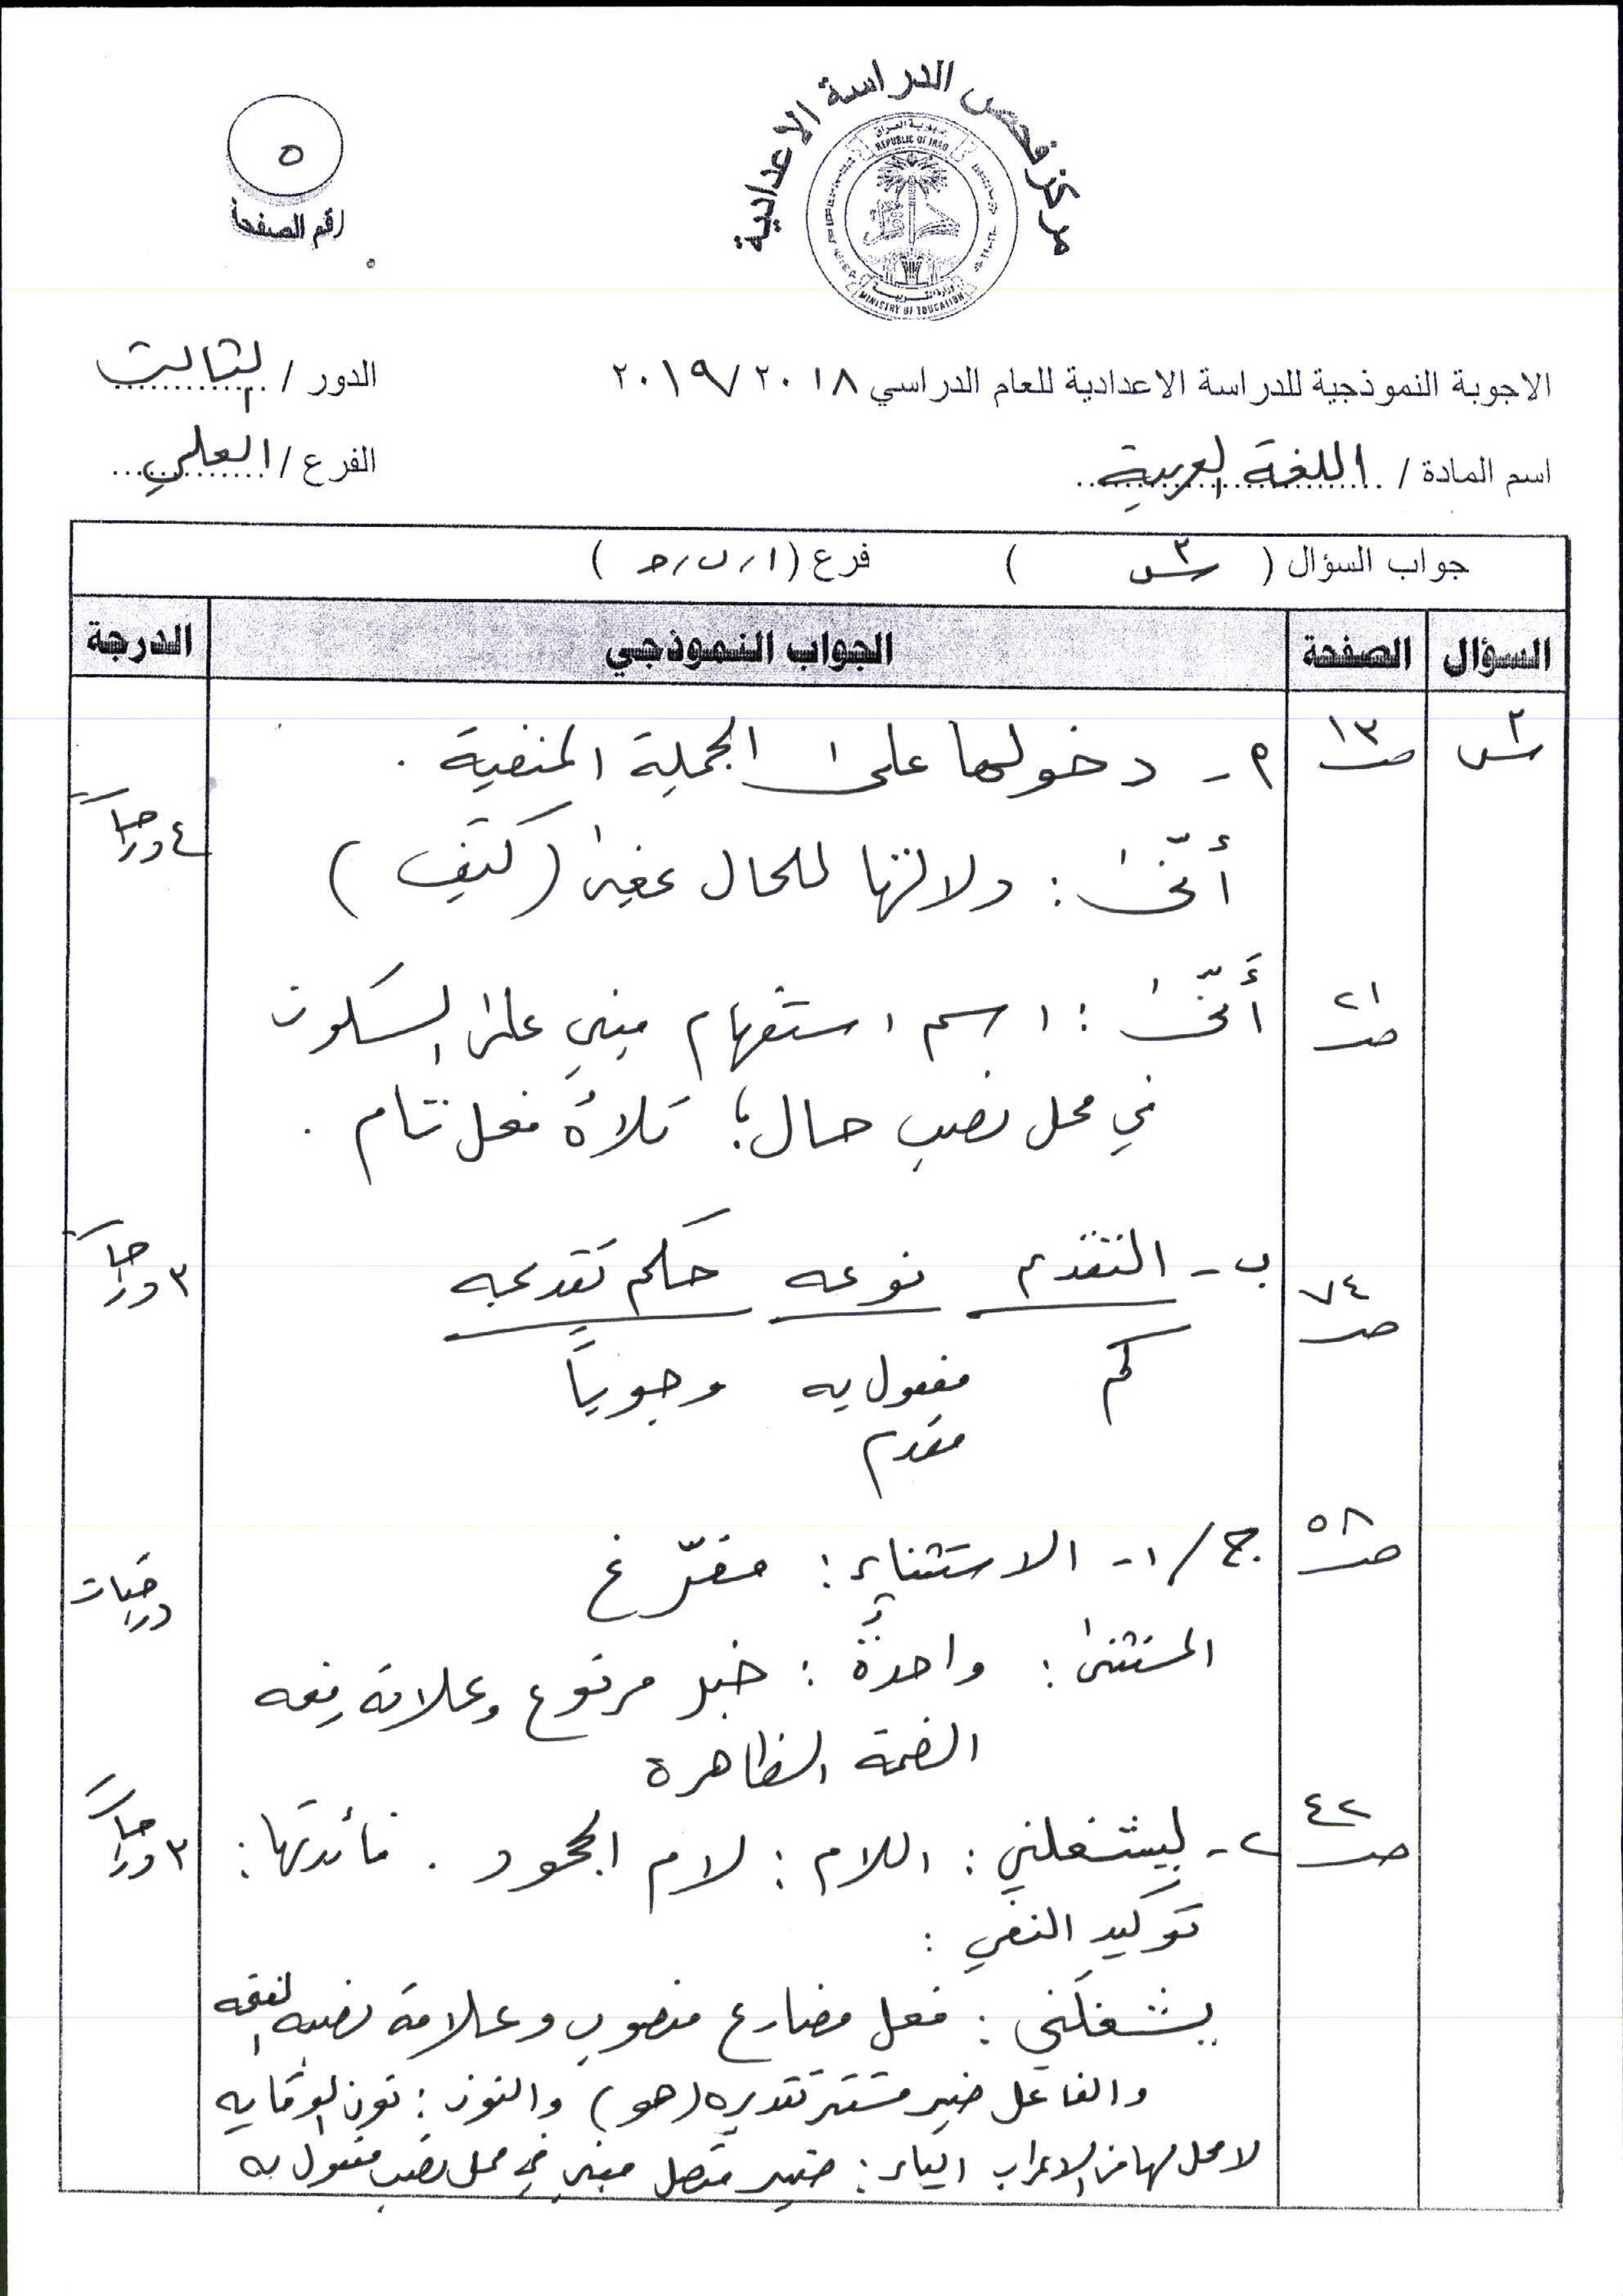 مركز فحص الدراسة الاعدادية
جمهورية العراق
REPUBLIC OF IRAQ
وزارة التربية
MINISTRY OF EDUCATION
٥
رقم الصفحة
الاجوبة النموذجية للدراسة الاعدادية للعام الدراسي ٢٠١٨ / ٢٠١٩
الدور / الثالث
اسم المادة / اللغة العربية
الفرع / العلمي
جواب السؤال ( س٣ ) فرع ( ا / ب / ج )
السؤال الصفحة الجواب النموذجي الدرجة
ص ١٣ م - دخولها على الجملة المنفية .
أنّى : دلالتها للحال بمعنى ( كيف ) ٤ درجات
ص ٢١ أَنّى : اسم استفهام مبني على السكون
في محل نصب حال ؛ تلاهُ فعل تام .
ص ٧٤ ب - المتقدم نوعه حكم تقديمه ٣ درجات
كم مفعول به وجوباً
مقدم
ص ٥٨ ج / ١ - الاستثناء : مفرّغ
درجتان
المستثنى : واحدةٌ : خبر مرفوع وعلامة رفعه
الضمة الظاهرة
ص ٤٢ ٢ - لِيشغلني : اللام : لام الجحود . فائدتها : ٣ درجات
توكيد النفي :
يشغلَني : فعل مضارع منصوب وعلامة نصبه الفتحة
والفاعل ضمير مستتر تقديره (هو) والنون : نون الوقاية
لا محل لها من الاعراب الياء : ضمير متصل مبني في محل نصب مفعول به